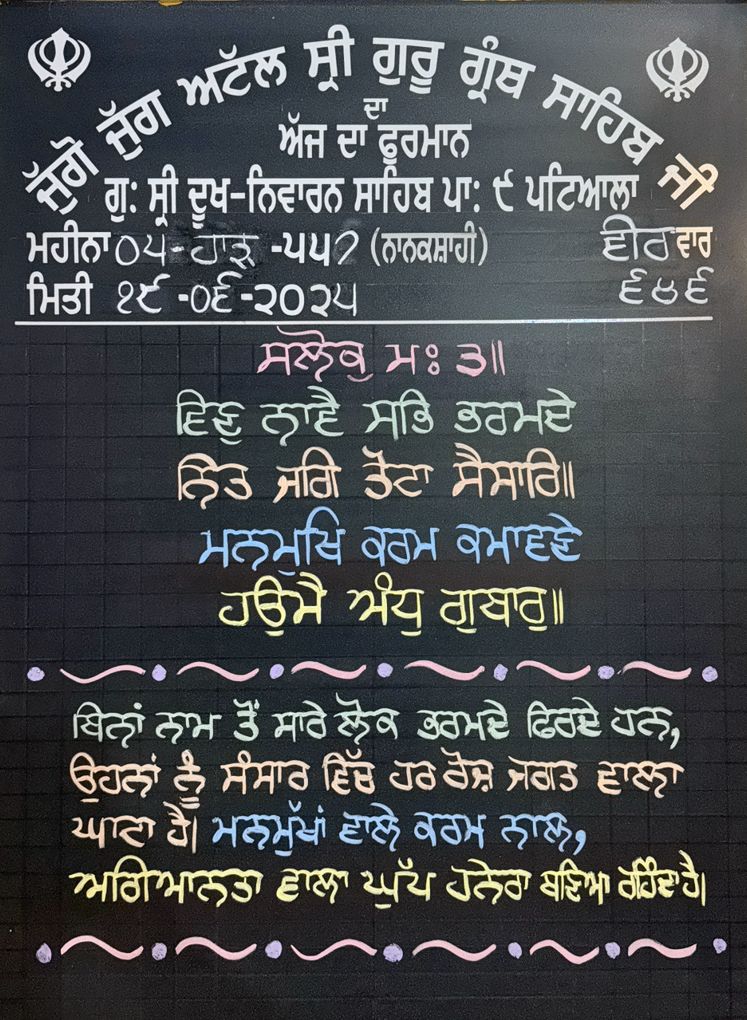 ਜੁੱਗੋ ਜੁੱਗ ਅਟੱਲ ਸ੍ਰੀ ਗੁਰੂ ਗ੍ਰੰਥ ਸਾਹਿਬ ਜੀ
ਦਾ
ਅੱਜ ਦਾ ਫੁਰਮਾਨ
ਗੁ: ਸ੍ਰੀ ਦੂਖ-ਨਿਵਾਰਨ ਸਾਹਿਬ ਪਾ: ੯ ਪਟਿਆਲਾ
ਮਹੀਨਾ ੦੫-ਹਾੜ-੫੫੭ (ਨਾਨਕਸ਼ਾਹੀ) ਵੀਰਵਾਰ
ਮਿਤੀ ੧੯-੦੬-੨੦੨੫ ੬੪੬
ਸਲੋਕੁ ਮਃ ੩॥
ਵਿਣੁ ਨਾਵੈ ਸਭਿ ਭਰਮਦੇ
ਨਿਤ ਜਗਿ ਤੋਟਾ ਸੈਸਾਰਿ॥
ਮਨਮੁਖਿ ਕਰਮ ਕਮਾਵਣੇ
ਹਉਮੈ ਅੰਧੁ ਗੁਬਾਰੁ॥
ਬਿਨਾਂ ਨਾਮ ਤੋਂ ਸਾਰੇ ਲੋਕ ਭਰਮਦੇ ਫਿਰਦੇ ਹਨ,
ਉਹਨਾਂ ਨੂੰ ਸੰਸਾਰ ਵਿੱਚ ਹਰ ਰੋਜ਼ ਜਗਤ ਵਾਲਾ
ਘਾਟਾ ਹੈ। ਮਨਮੁੱਖਾਂ ਵਾਲੇ ਕਰਮ ਨਾਲ,
ਅਗਿਆਨਤਾ ਵਾਲਾ ਘੁੱਪ ਹਨੇਰਾ ਬਣਿਆ ਰਹਿੰਦਾ ਹੈ।